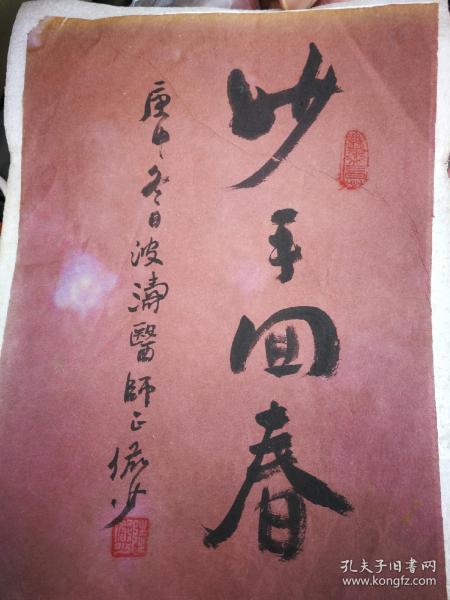 妙手回春
庚申冬日波濤醫師正儼少
孔夫子旧书网
www.kongfz.com